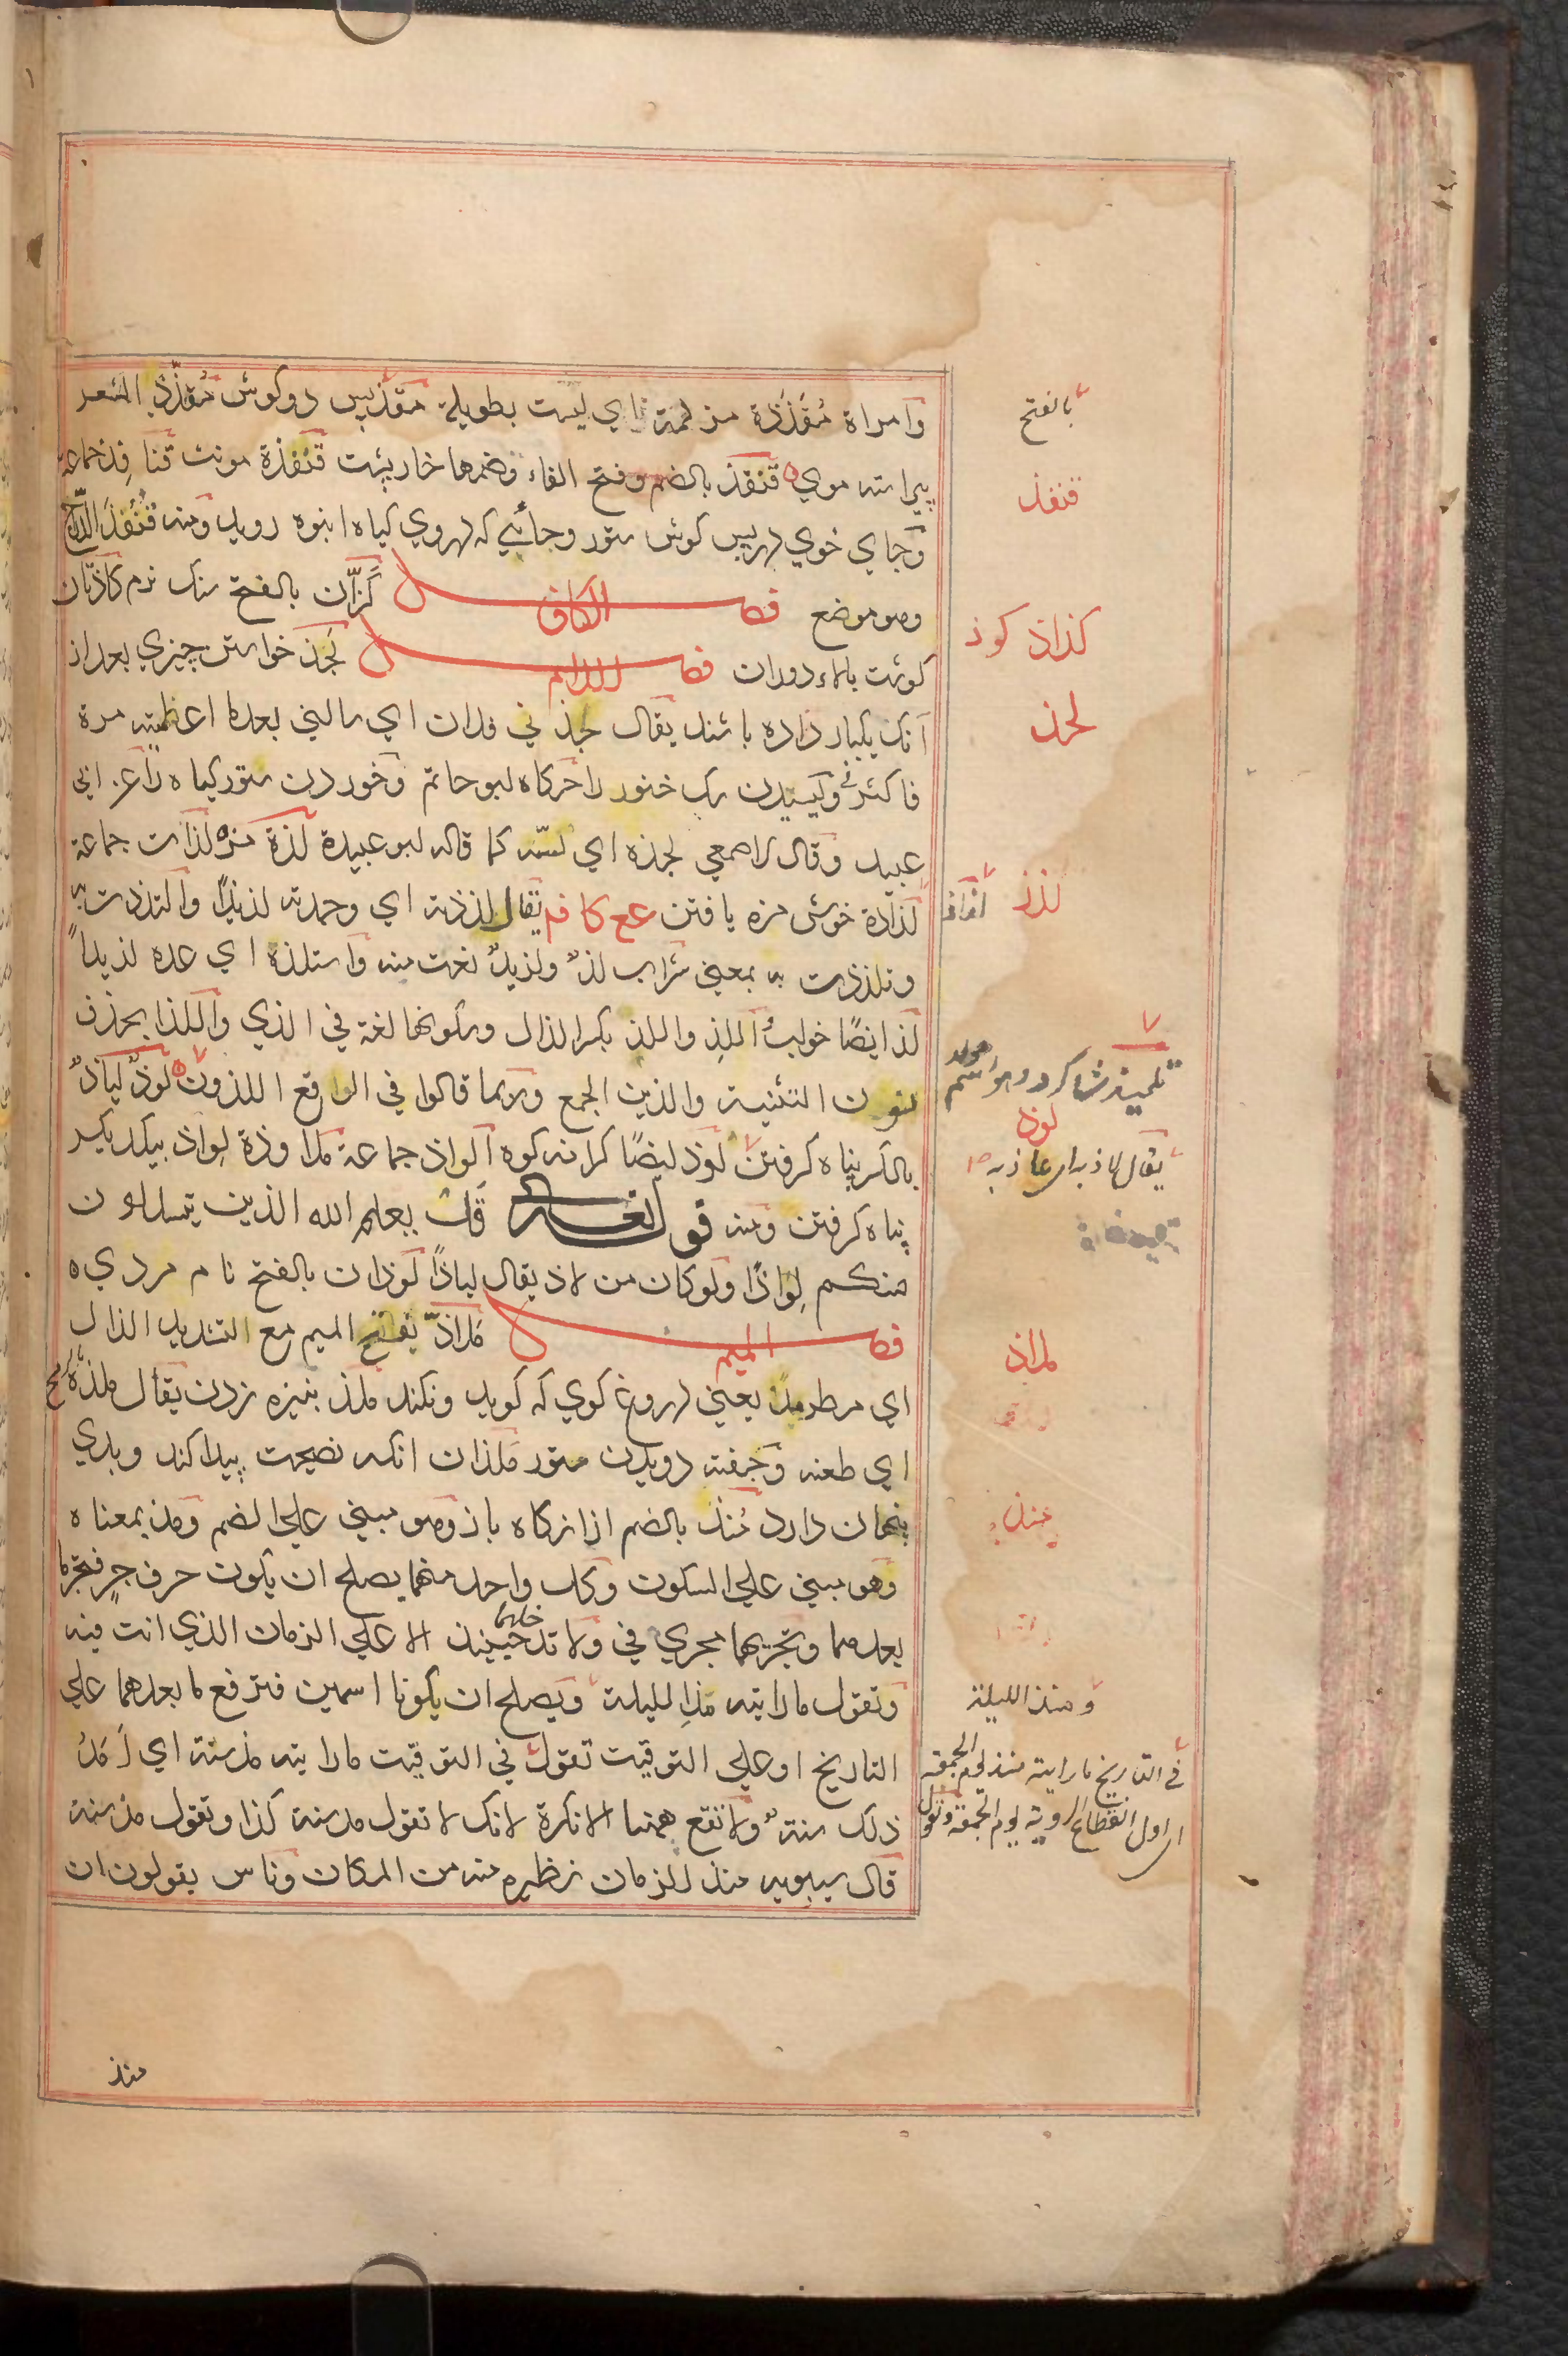 وامراة مُقَذَّذة مزلمة اي ليست بطويلة مقذ پس دو كوش مُقذّذ الشعر
پيراسته موي قنفذ بالضم وفتح الفاء وضمها خارپشت قنفذة مونث قنافذ جماعة
وجاي خوي در پس كوش ستور وجائي كه دروي كياه انبوه رويد ومنه قُنفُذ الدّرّاج
وهو موضع فصل الكاف كَذّان بالفتح سنك نرم كاذتان
كوشت باره دوران فصل اللام لجذ خواستن چيزي بعد از
آنك يكبار داده باشند يقال لجذ ني فلان اي سالني بعد ما اعطيته مرة
فاكثر وليسيدن سك خنور را حركاه لبو حاتم وخوردن ستور كياه را عن ابي
عبيد وقال الاصمعي لجذه اي لسّه كما قاله ابو عبيدة لذة مزه لذات جماعة
لذاذة خوش مزه يافتن عع كا فم يقال لذذته اي وجدته لذيذًا والتذذت به
وتلذذت به بمعني شراب لذ ولذيذ نعت منه واستلذه اي عده لذيذاً
لذ ايضًا خواب الذِ واللذ بكسر الذال وسكونها لغة في الذي واللذا بحذف
نون التثنية والذين الجمع وربما قالوا في الواقع اللذون لوذ لياذ
بالكسر پناه كرفتن لوذ ايضًا كرانه كوه الواذ جماعة ملاوذة لواذ بيكديكر
پناه كرفتن ومنه قوله تعالى قد يعلم الله الذين يتسللون
منكم لِوَاذًا ولو كان من لاذ يقال لياذًا لوذان بالفتح نام مردي ه
فصل الميم مَلاذّ بفتح الميم مع التشديد الذال
اي مطرمذ يعني دروغ كوي كه كويد ونكند ملذ بنيزه زدن يقال ملذه بالرمح
اي طعنه وخفته دويدن ستور ملذان انكه نصيحت پيدا كند وبدي
پنهان دارد مُنذ بالضم از ازكاه باز وهو مبني علي الضم ومذ بمعناه
وهو مبني علي السكون وكل واحد منهما يصلح ان يكون حرف جرٍ فتجر ما
بعدهما وتجريهما مجري في ولا تدخلهما حينئذ الا علي الزمان الذي انت فيه
وتقول ما رايته مذ الليلة ويصلح ان يكونا اسمين فترفع ما بعدهما علي
التاريخ او علي التوقيت تقول في التوقيت ما رايته مذ سنة اي اَمَدُ
ذلك سنة ولا تقع ههنا الا نكرة لانك لا تقول مذ سنة كذا وتقول مذ سنة
قال سيبويه منذ للزمان نظيره منه من المكان وناس يقولون ان
بالفتح
قنفذ
كذان كوذ
لجذ
لذذ
تلميذ شاكرد وهو اسم
لوذ
يقال لاذ به اي عاذ به
ملاذ
منذ
ومنذ الليلة
في التاريخ ما رايته منذ يوم الجمعة
اي اول انقطاع الروية يوم الجمعة وتقول
منذ